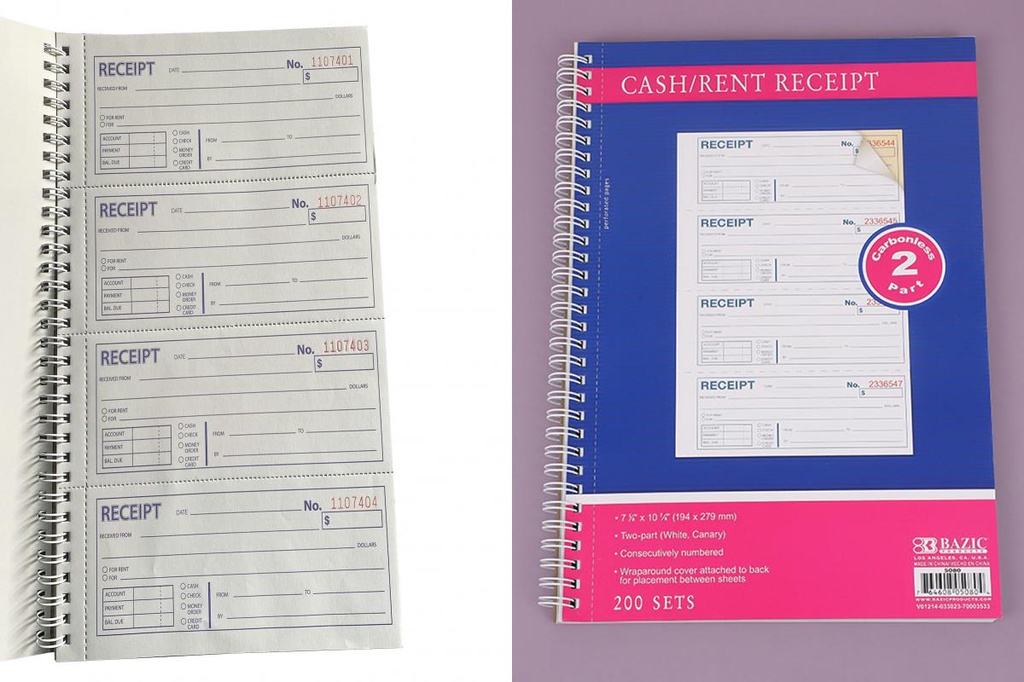 RECEIPT DATE No. 1107401
$
RECEIVED FROM
DOLLARS
FOR RENT
FOR
ACCOUNT CASH
PAYMENT CHECK FROM TO
BAL. DUE MONEY ORDER
CREDIT CARD BY
RECEIPT DATE No. 1107402
$
RECEIVED FROM
DOLLARS
FOR RENT
FOR
ACCOUNT CASH
PAYMENT CHECK FROM TO
BAL. DUE MONEY ORDER
CREDIT CARD BY
RECEIPT DATE No. 1107403
$
RECEIVED FROM
DOLLARS
FOR RENT
FOR
ACCOUNT CASH
PAYMENT CHECK FROM TO
BAL. DUE MONEY ORDER
CREDIT CARD BY
RECEIPT DATE No. 1107404
$
RECEIVED FROM
DOLLARS
FOR RENT
FOR
ACCOUNT CASH
PAYMENT CHECK FROM TO
BAL. DUE MONEY ORDER
CREDIT CARD BY
CASH/RENT RECEIPT
perforated pages
RECEIPT No. 36544
$
RECEIPT No. 2336545
$
Carbonless
2
Part
RECEIPT No.
RECEIPT No. 2336547
$
• 7 ⅝" x 10 ¾" (194 x 279 mm)
• Two-part (White, Canary)
• Consecutively numbered
• Wraparound cover attached to back
for placement between sheets
200 SETS
BAZIC
PRODUCTS
LOS ANGELES, CA, U.S.A.
MADE IN CHINA/HECHO EN CHINA
5080
7 64608 05080
WWW.BAZICPRODUCTS.COM
V01214-033023-70003533